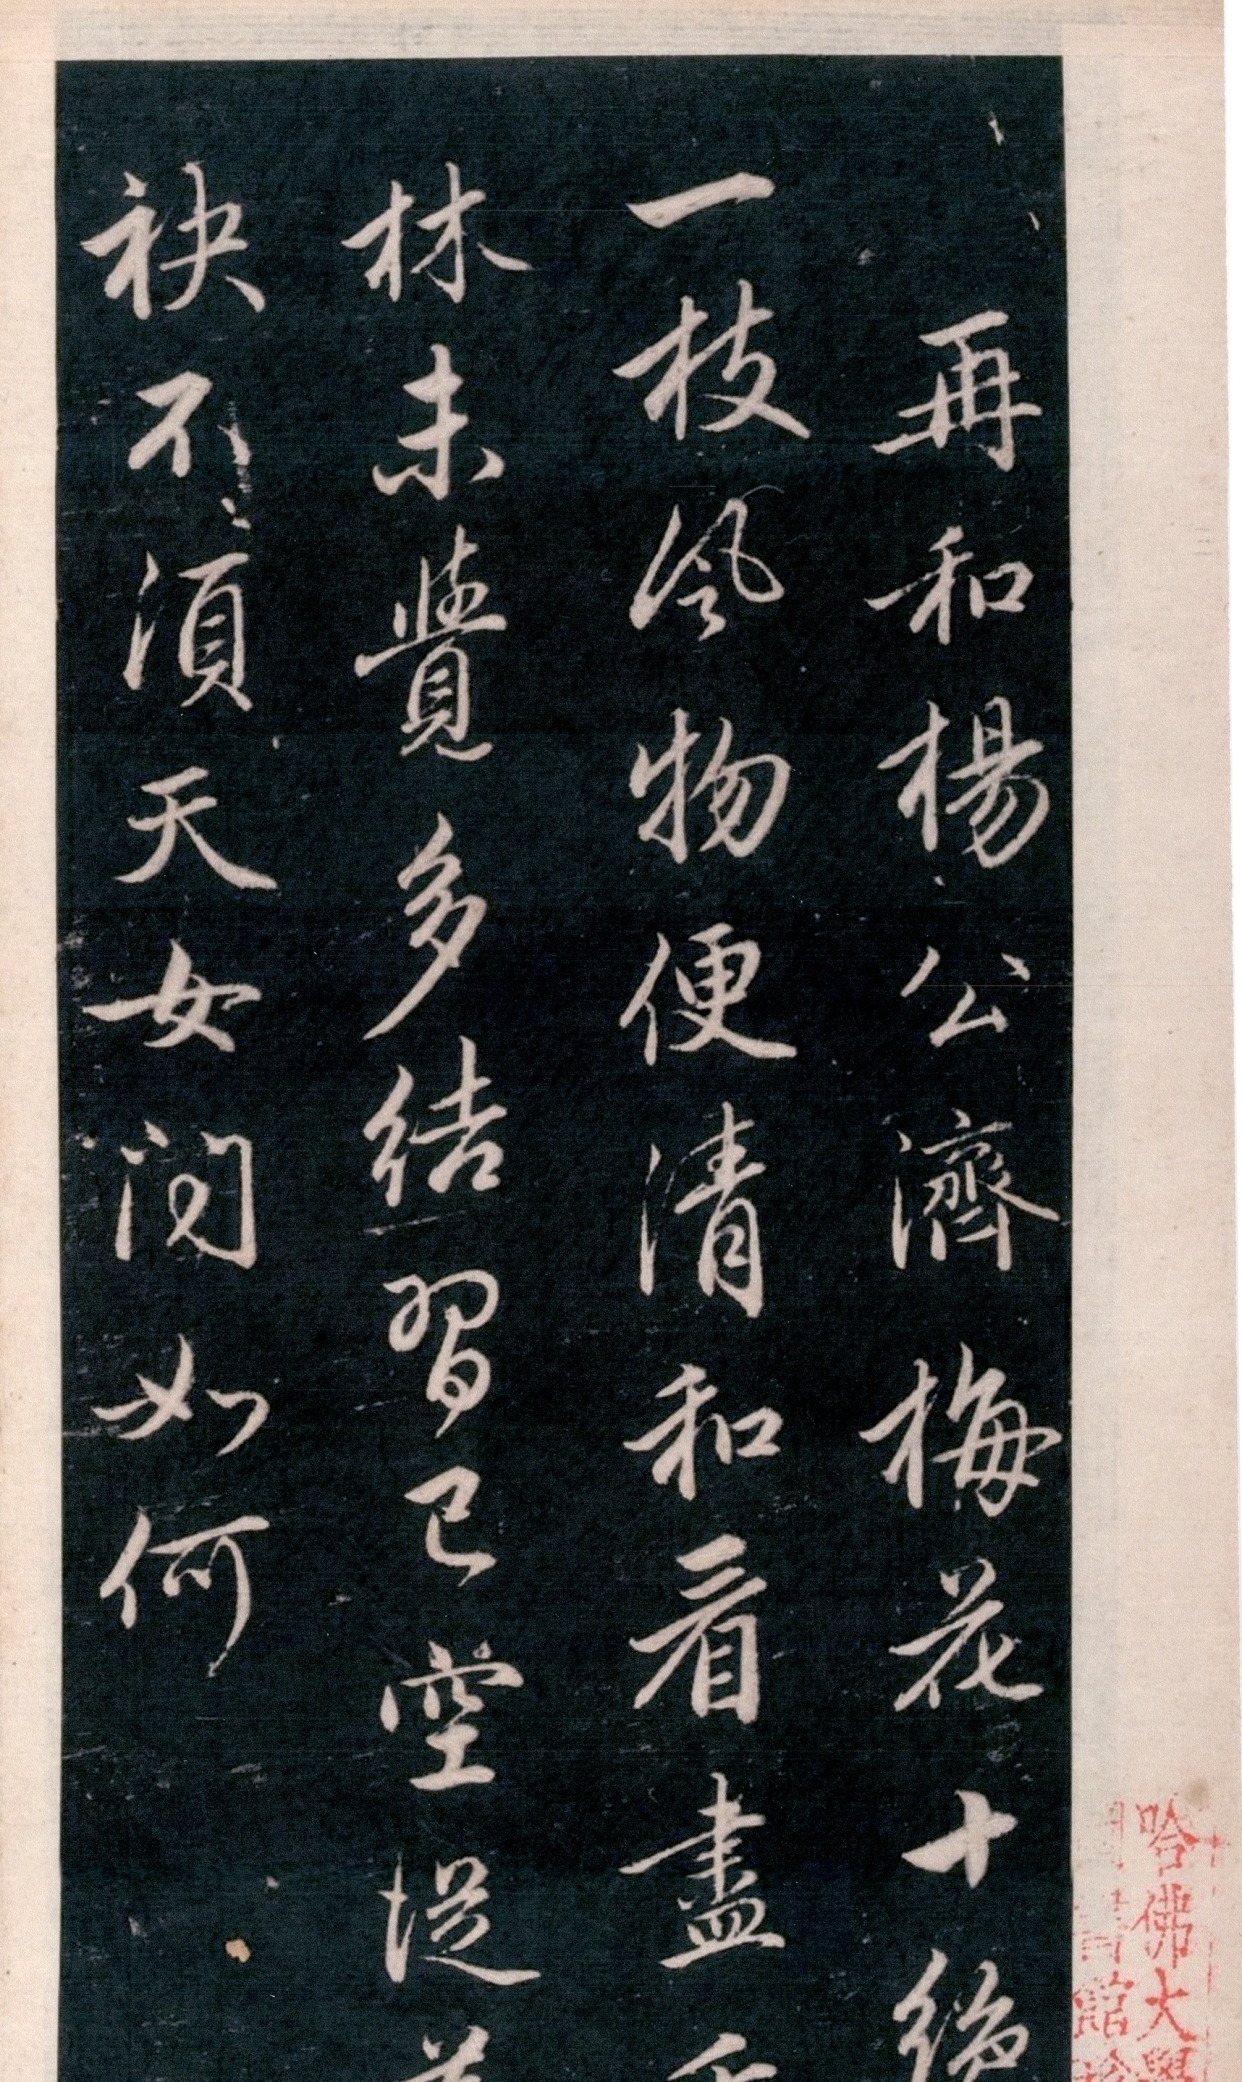 再和楊公濟梅花十絶
一枝風物便清和看盡
林未覺多結習已空從
袂不須天女問如何
哈佛大學
書館